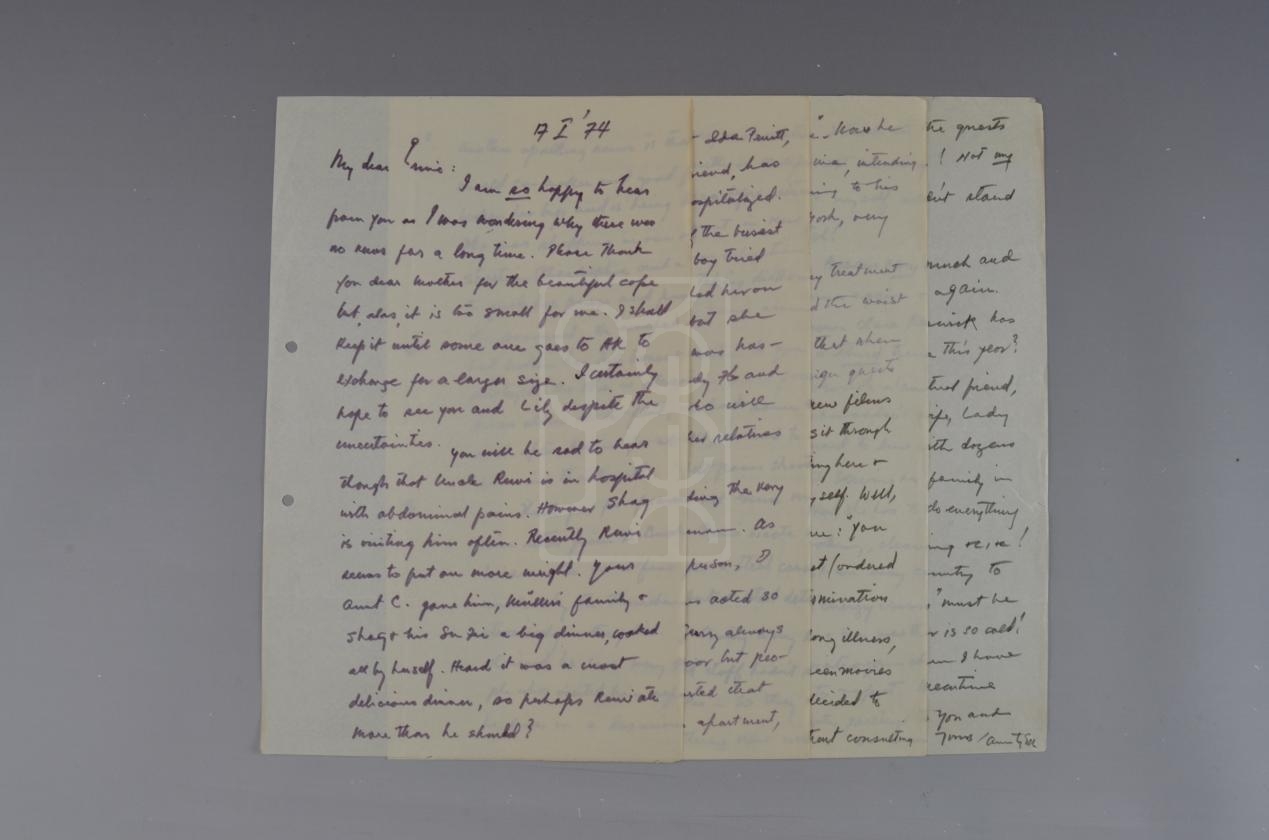 17 I '74
My dear Ernie:
I am so happy to hear
from you as I was wondering why there was
no news for a long time. Please thank
you dear mother for the beautiful cape
but, alas, it is too small for me. I shall
keep it until some one goes to HK to
exchange for a larger size. I certainly
hope to see you and Lily despite the
uncertainties. You will be sad to hear
though that Uncle Rewi is in hospital
with abdominal pains. However Shag
is visiting him often. Recently Rewi
seems to put on more weight. Your
Aunt C. gave him, Müller's family &
Shag & his a big dinner, cooked
all by herself. Heard it was a most
delicious dinner, so perhaps Rewi ate
more than he should?
- Ida Pruitt,
riend, has
ospitalized.
the busiest
boy tried
led her on
but she
was has-
dy 76 and
who will
her relatives
ding the very
man. As
person, I
s acted so
always
oor, but peo-
sted that
apartment,
e". Now he
ina, intending
ing to his
very
y treatment
d the waist
that when
ign guests
new films
sit through
ing here &
yself. Well,
me: "You
et (ordered
omination
long illness,
seen movies
decided to
hout consulting
the guests
! Not my
n't stand
much and
again.
has
this year?
tual friend,
ife, Lady
ith dozens
family in
do everything
ing etc, etc!
untry to
" must be
r is so cold!
I have
meantime
you and
Yours / Aunty